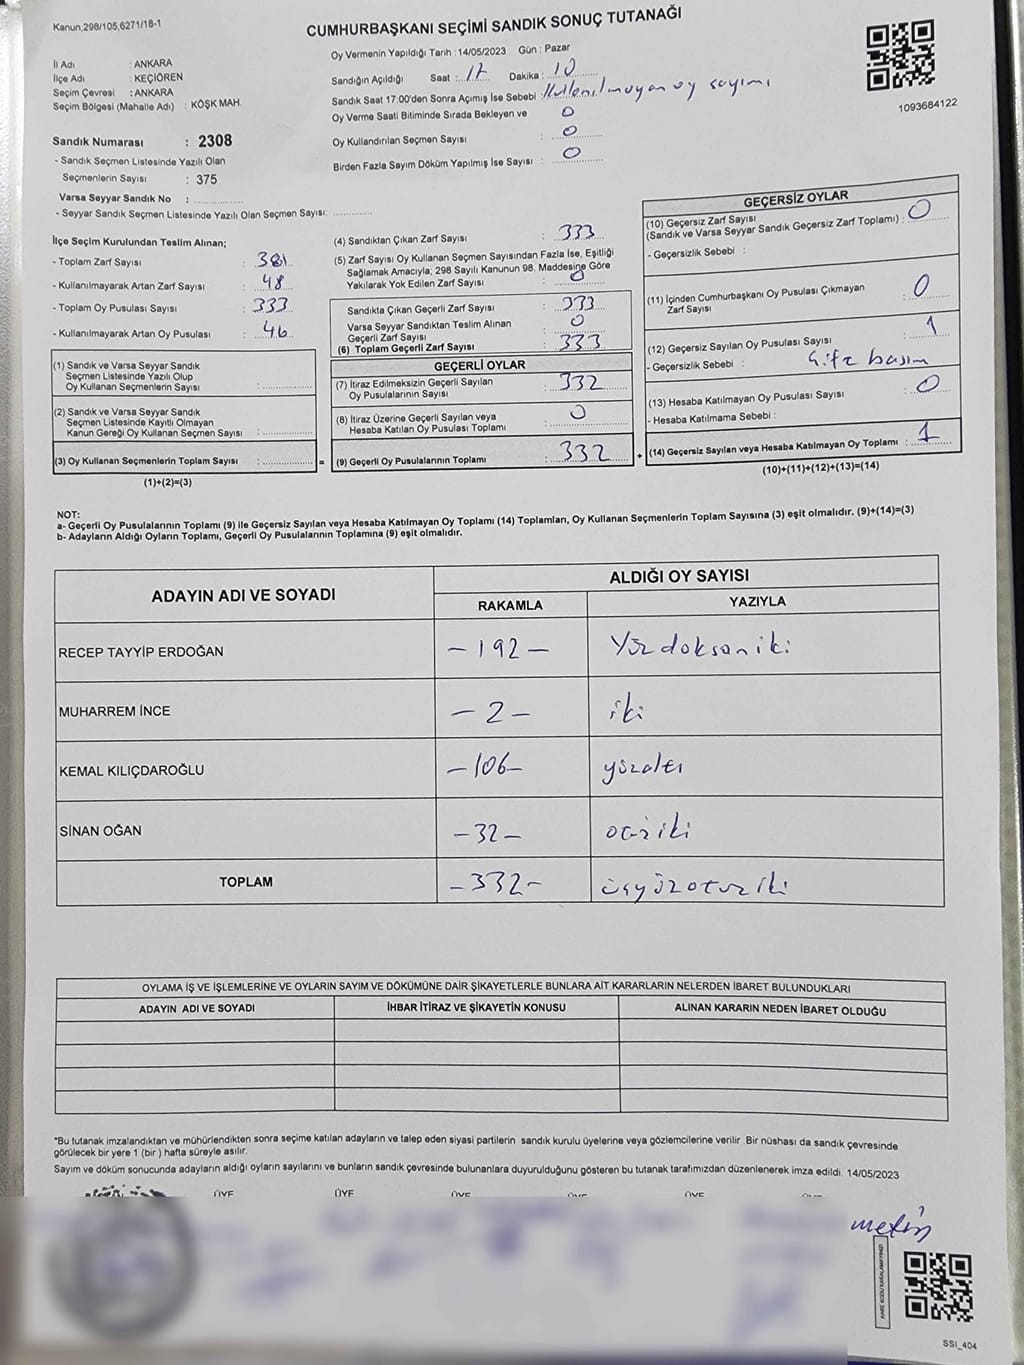 Kanun,298/105,6271/18-1
CUMHURBAŞKANI SEÇİMİ SANDIK SONUÇ TUTANAĞI
İl Adı : ANKARA
İlçe Adı : KEÇİÖREN
Seçim Çevresi : ANKARA
Seçim Bölgesi (Mahalle Adı) : KÖŞK MAH.
Sandık Numarası : 2308
- Sandık Seçmen Listesinde Yazılı Olan
Seçmenlerin Sayısı : 375
Varsa Seyyar Sandık No :
- Seyyar Sandık Seçmen Listesinde Yazılı Olan Seçmen Sayısı:
Oy Vermenin Yapıldığı Tarih : 14/05/2023 Gün : Pazar
Sandığın Açıldığı Saat : 17 Dakika : 10
Sandık Saat 17:00'den Sonra Açımış İse Sebebi : Kullanılmayan oy sayımı
Oy Verme Saati Bitiminde Sırada Bekleyen ve 0
Oy Kullandırılan Seçmen Sayısı : 0
Birden Fazla Sayım Döküm Yapılmış İse Sayısı : 0
1093684122
İlçe Seçim Kurulundan Teslim Alınan;
- Toplam Zarf Sayısı : 381
- Kullanılmayarak Artan Zarf Sayısı : 48
- Toplam Oy Pusulası : 333
- Kullanılmayarak Artan Oy Pusulası : 46
(1) Sandık ve Varsa Seyyar Sandık
Seçmen Listesinde Yazılı Olup
Oy Kullanan Seçmenlerin Sayısı :
(2) Sandık ve Varsa Seyyar Sandık
Seçmen Listesinde Kayıtlı Olmayan
Kanun Gereği Oy Kullanan Seçmen Sayısı :
(3) Oy Kullanan Seçmenlerin Toplam Sayısı : =
(1)+(2)=(3)
(4) Sandıktan Çıkan Zarf Sayısı : 333
(5) Zarf Sayısı Oy Kullanan Seçmen Sayısından Fazla İse, Eşitliği
Sağlamak Amacıyla; 298 Sayılı Kanunun 98. Maddesine Göre
Yakılarak Yok Edilen Zarf Sayısı : 0
Sandıkta Çıkan Geçerli Zarf Sayısı : 333
Varsa Seyyar Sandıktan Teslim Alınan
Geçerli Zarf Sayısı : 0
(6) Toplam Geçerli Zarf Sayısı : 333
GEÇERLİ OYLAR
(7) İtiraz Edilmeksizin Geçerli Sayılan
Oy Pusulalarının Sayısı : 332
(8) İtiraz Üzerine Geçerli Sayılan veya
Hesaba Katılan Oy Pusulası Toplamı : 0
(9) Geçerli Oy Pusulalarının Toplamı : 332 +
GEÇERSİZ OYLAR
(10) Geçersiz Zarf Sayısı
(Sandık ve Varsa Seyyar Sandık Geçersiz Zarf Toplamı) : 0
- Geçersizlik Sebebi :
(11) İçinden Cumhurbaşkanı Oy Pusulası Çıkmayan
Zarf Sayısı : 0
(12) Geçersiz Sayılan Oy Pusulası Sayısı : 1
- Geçersizlik Sebebi : Çift basım
(13) Hesaba Katılmayan Oy Pusulası Sayısı : 0
- Hesaba Katılmama Sebebi :
(14) Geçersiz Sayılan veya Hesaba Katılmayan Oy Toplamı : 1
(10)+(11)+(12)+(13)=(14)
NOT:
a- Geçerli Oy Pusulalarının Toplamı (9) ile Geçersiz Sayılan veya Hesaba Katılmayan Oy Toplamı (14) Toplamları, Oy Kullanan Seçmenlerin Toplam Sayısına (3) eşit olmalıdır. (9)+(14)=(3)
b- Adayların Aldığı Oyların Toplamı, Geçerli Oy Pusulalarının Toplamına (9) eşit olmalıdır.
ADAYIN ADI VE SOYADI
ALDIĞI OY SAYISI
RAKAMLA YAZIYLA
RECEP TAYYİP ERDOĞAN -192- Yüzdoksaniki
MUHARREM İNCE -2- iki
KEMAL KILIÇDAROĞLU -106- yüzaltı
SİNAN OĞAN -32- otuziki
TOPLAM -332- üçyüzotuziki
OYLAMA İŞ VE İŞLEMLERİNE VE OYLARIN SAYIM VE DÖKÜMÜNE DAİR ŞİKAYETLERLE BUNLARA AİT KARARLARIN NELERDEN İBARET BULUNDUKLARI
ADAYIN ADI VE SOYADI İHBAR İTİRAZ VE ŞİKAYETİN KONUSU ALINAN KARARIN NEDEN İBARET OLDUĞU
*Bu tutanak imzalandıktan ve mühürlendikten sonra seçime katılan adayların ve talep eden siyasi partilerin sandık kurulu üyelerine veya gözlemcilerine verilir. Bir nüshası da sandık çevresinde
görülecek bir yere 1 (bir ) hafta süreyle asılır.
Sayım ve döküm sonucunda adayların aldığı oyların sayılarını ve bunların sandık çevresinde bulunanlara duyurulduğunu gösteren bu tutanak tarafımızdan düzenlenerek imza edildi. 14/05/2023
ÜYE ÜYE ÜYE ÜYE ÜYE ÜYE
metin
KARE KODU KARALAMAYINIZ!
SSI_404